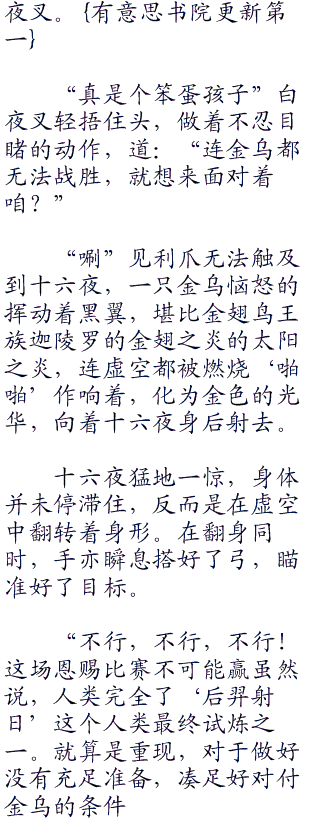 夜叉。{有意思书院更新第
一}
“真是个笨蛋孩子”白
夜叉轻捂住头，做着不忍目
睹的动作，道：“连金乌都
无法战胜，就想来面对着
咱？”
“唰”见利爪无法触及
到十六夜，一只金乌恼怒的
挥动着黑翼，堪比金翅鸟王
族迦陵罗的金翅之炎的太阳
之炎，连虚空都被燃烧‘啪
啪’作响着，化为金色的光
华，向着十六夜身后射去。
十六夜猛地一惊，身体
并未停滞住，反而是在虚空
中翻转着身形。在翻身同
时，手亦瞬息搭好了弓，瞄
准好了目标。
“不行，不行，不行！
这场恩赐比赛不可能赢虽然
说，人类完全了‘后羿射
日’这个人类最终试炼之
一。就算是重现，对于做好
没有充足准备，凑足好对付
金乌的条件